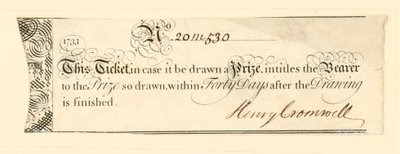 1733
No. 20m530
This Ticket, in case it be drawn a Prize, intitles the Bearer
to the Prize so drawn, within Forty Days after the Drawing
is finished.
Henry Cromwell